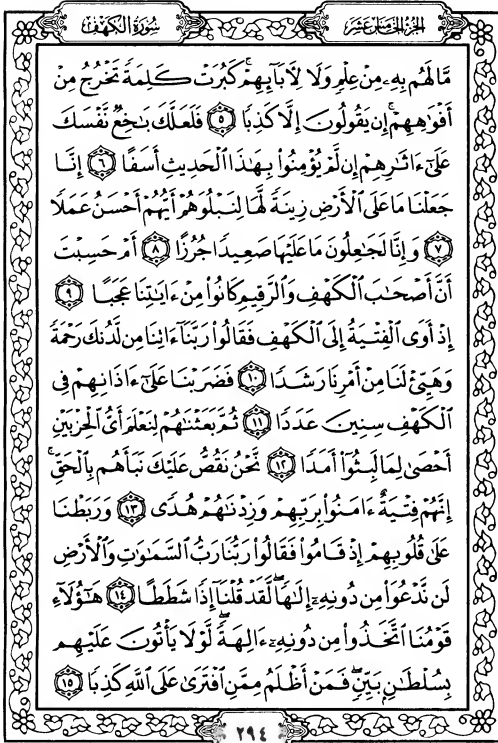 سُورَةُ الكَهْفِ
الجُزْءُ الخَامِسُ عَشَرَ
مَّا لَهُم بِهِۦ مِنْ عِلْمٍ وَلَا لِأٓبَآئِهِمْ ۚ كَبُرَتْ كَلِمَةً تَخْرُجُ مِنْ
أَفْوَٰهِهِمْ ۚ إِن يَقُولُونَ إِلَّا كَذِبًا ٥ فَلَعَلَّكَ بَٰخِعٌ نَّفْسَكَ
عَلَىٰٓ ءَاثَٰرِهِمْ إِن لَّمْ يُؤْمِنُوا۟ بِهَٰذَا ٱلْحَدِيثِ أَسَفًا ٦ إِنَّا
جَعَلْنَا مَا عَلَى ٱلْأَرْضِ زِينَةً لَّهَا لِنَبْلُوَهُمْ أَيُّهُمْ أَحْسَنُ عَمَلًا
٧ وَإِنَّا لَجَٰعِلُونَ مَا عَلَيْهَا صَعِيدًا جُرُزًا ٨ أَمْ حَسِبْتَ
أَنَّ أَصْحَٰبَ ٱلْكَهْفِ وَٱلرَّقِيمِ كَانُوا۟ مِنْ ءَايَٰتِنَا عَجَبًا ٩
إِذْ أَوَى ٱلْفِتْيَةُ إِلَى ٱلْكَهْفِ فَقَالُوا۟ رَبَّنَآ ءَاتِنَا مِن لَّدُنكَ رَحْمَةً
وَهَيِّئْ لَنَا مِنْ أَمْرِنَا رَشَدًا ١٠ فَضَرَبْنَا عَلَىٰٓ ءَاذَانِهِمْ فِى
ٱلْكَهْفِ سِنِينَ عَدَدًا ١١ ثُمَّ بَعَثْنَٰهُمْ لِنَعْلَمَ أَىُّ ٱلْحِزْبَيْنِ
أَحْصَىٰ لِمَا لَبِثُوٓا۟ أَمَدًا ١٢ نَّحْنُ نَقُصُّ عَلَيْكَ نَبَأَهُم بِٱلْحَقِّ ۚ
إِنَّهُمْ فِتْيَةٌ ءَامَنُوا۟ بِرَبِّهِمْ وَزِدْنَٰهُمْ هُدًى ١٣ وَرَبَطْنَا
عَلَىٰ قُلُوبِهِمْ إِذْ قَامُوا۟ فَقَالُوا۟ رَبُّنَا رَبُّ ٱلسَّمَٰوَٰتِ وَٱلْأَرْضِ
لَن نَّدْعُوَا۟ مِن دُونِهِۦٓ إِلَٰهًا ۖ لَّقَدْ قُلْنَآ إِذًا شَطَطًا ١٤ هَٰٓؤُلَآءِ
قَوْمُنَا ٱتَّخَذُوا۟ مِن دُونِهِۦٓ ءَالِهَةً ۖ لَّوْلَا يَأْتُونَ عَلَيْهِم
بِسُلْطَٰنٍۭ بَيِّنٍ ۖ فَمَنْ أَظْلَمُ مِمَّنِ ٱفْتَرَىٰ عَلَى ٱللَّهِ كَذِبًا ١٥
٢٩٤